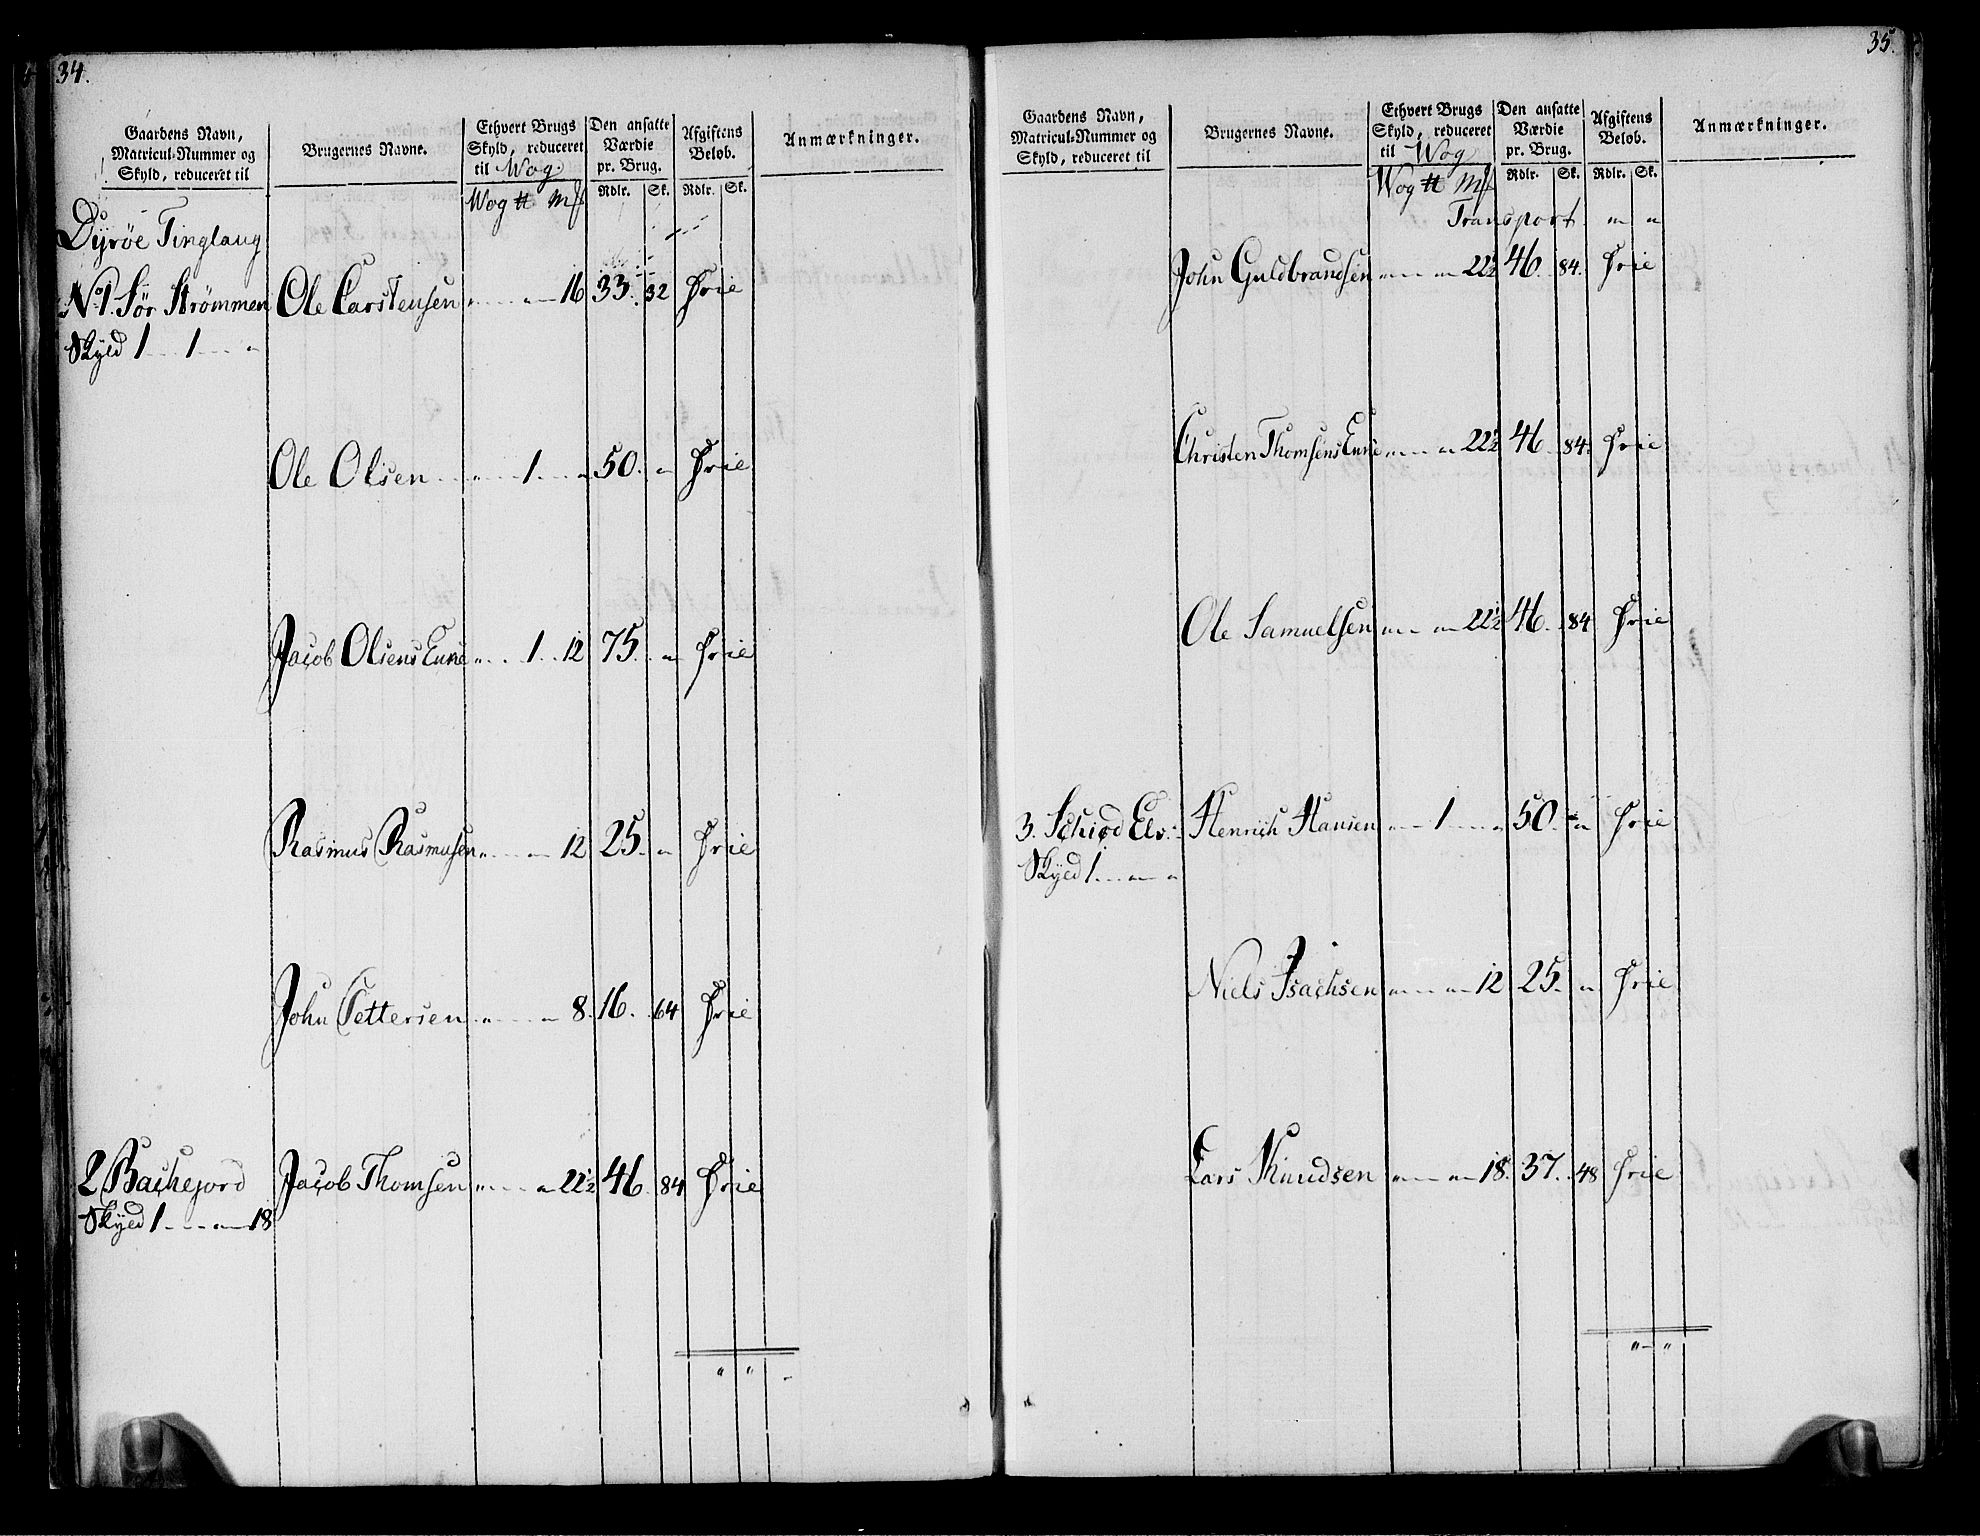 34.
Gaardens Navn,
Matricul-Nummer og
Skyld, reduceret til
Brugernes Navne.
Ethvert Brugs
Skyld, reduceret
til Wog
Den ansatte
Værdie
pr. Brug.
Afgiftens
Beløb.
Anmærkninger.
Wog ℔ Mk
Rdlr. Sk. Rdlr. Sk.
Dyrøe Tinglaug
No 1. Sør Strømmen Ole Carstensen " " 16 33. 32 Frie
Skyld 1 1 "
Ole Olsen " 1 " 50. " Frie
Jacob Olsens Enne " 1 12 75. " Frie
Rasmus Rasmusen " " 12 25. " Frie
John Pettersen " " 8. 16. 64 Frie
2 Bachejord Jacob Thomsen " " 22½ 46. 84 Frie
Skyld 1 " 18
" "
35.
Gaardens Navn,
Matricul-Nummer og
Skyld, reduceret til
Brugernes Navne.
Ethvert Brugs
Skyld, reduceret
til Wog
Den ansatte
Værdie
pr. Brug.
Afgiftens
Beløb.
Anmærkninger.
Wog ℔ Mk
Rdlr. Sk. Rdlr. Sk.
Transport " "
John Guldbrandsen " " 22½ 46. 84. Frie
Christen Thomsens Enne " " 22½ 46 84. Frie
Ole Samuelsen " " 22½ 46. 84 Frie
3. Schiød Elv: Henrich Hansen " 1 " 50. " Frie
Skyld 1 " "
Niels Isachsen " " 12 25. " Frie
Lars Knudsen " " 18. 37. 48 Frie
" "